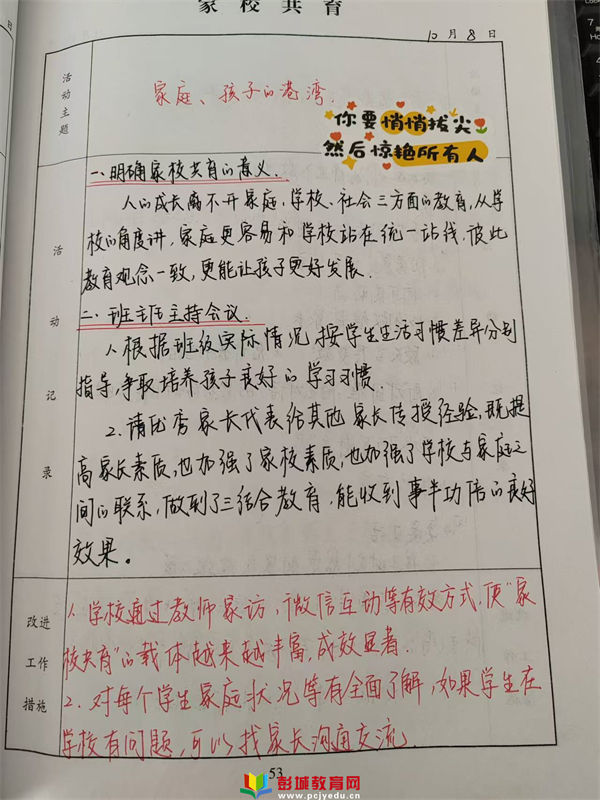 家校共育
10月8日
活动主题
家庭、孩子的港湾.
你要悄悄拔尖
然后惊艳所有人
活动记录
一.明确家校共育的意义.
人的成长离不开家庭.学校、社会三方面的教育,从学
校的角度讲,家庭更容易和学校站在统一站线,彼此
教育观念一致,更能让孩子更好发展.
二.班主任主持会议.
1.根据班级实际情况按学生生活习惯差异分别
指导,争取培养孩子良好的学习习惯.
2.请优秀家长代表给其他家长传授经验,既提
高家长素质,也加强了家校素质,也加强了学校与家庭之
间的联系,做到了三结合教育.能收到事半功倍的良好
效果。
改进工作措施
1.学校通过教师家访,微信互动等有效方式.使"家
校共育"的载体越来越丰富,成效显著.
2.对每个学生家庭状况等有全面了解,如果学生在
学校有问题,可以找家长沟通交流.
53
彭城教育网
www.pcjyedu.cn